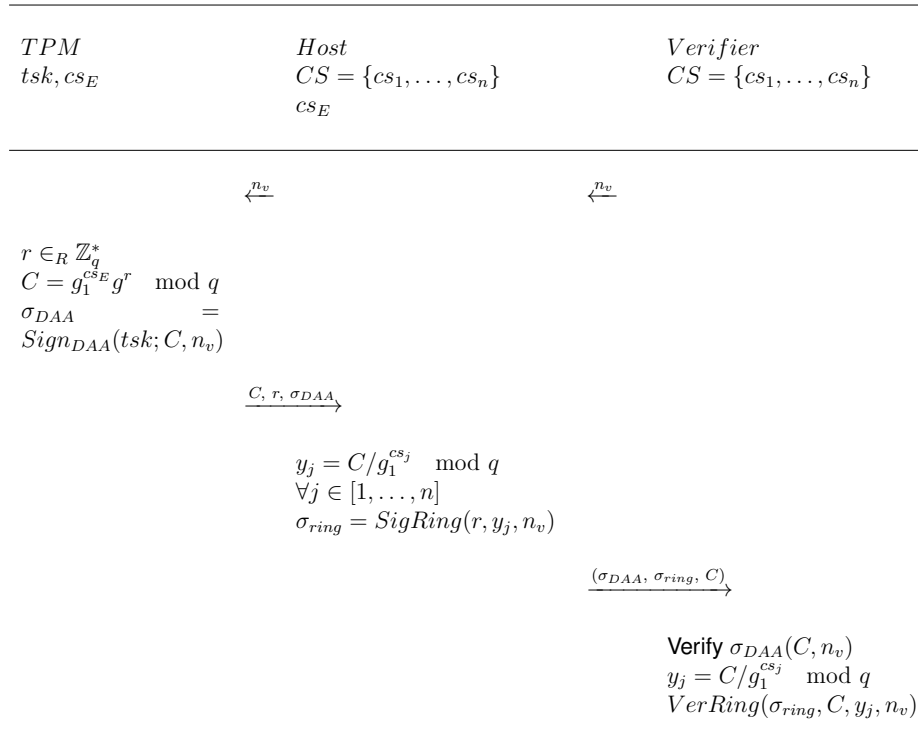 TPM Host Verifier
tsk, cs_E CS = {cs_1, . . . , cs_n} CS = {cs_1, . . . , cs_n}
cs_E
n_v n_v
r ∈_R ℤ_q^*
C = g_1^{cs_E} g^r mod q
σ_{DAA} =
Sign_{DAA}(tsk; C, n_v)
C, r, σ_{DAA}
y_j = C/g_1^{cs_j} mod q
∀j ∈ [1, . . . , n]
σ_{ring} = SigRing(r, y_j, n_v)
(σ_{DAA}, σ_{ring}, C)
Verify σ_{DAA}(C, n_v)
y_j = C/g_1^{cs_j} mod q
VerRing(σ_{ring}, C, y_j, n_v)